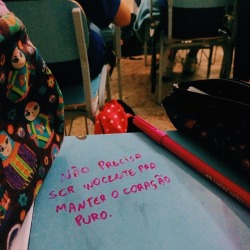 NÃO PRECISA
SER INOCENTE PRA
MANTER O CORAÇÃO
PURO.